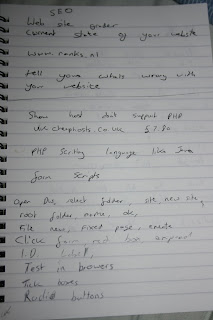 SEO
Web site grader
Current state of your website
www.ranks.nl
tell you whats wrong with
your website
Show host dont support PHP
uk.cheaphosts.co.uk
PHP Scriting language like Java
form Scripts
Open select folder, site, new site,
root folder, name, ok,
File new, Fixed page, create
Click form, red box around
I.D label,
Test in browers
Tick boxes
Radio buttons